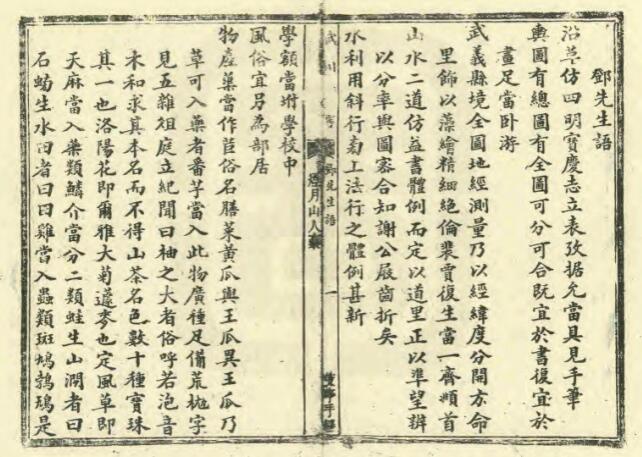 鄧先生語
沿革仿四明寶慶志立表攷据允當具見手筆
輿圖有總圖有全圖可分可合既宜於書復宜於
畫足當卧游
武義縣境全圖地經測量乃以經緯度分開方命
里飾以藻繪精細絶倫裴賈復生當一齊頫首
山水二道仿益書體例而定以道里正以準望辨
以分率與圖宻合知謝公屐齒折矣
水利用斜行啇上法行之體例甚新
武川
鄧先生語
一
學額當坿學校中
風俗宜另為部居
物產蔬當作苣俗名膳菜黄瓜與王瓜異王瓜乃
草可入藥者番芋當入此物廣種足備荒枹字
見五雜俎庭立紀聞曰柚之大者俗呼若泡音
木和求其本名而不得山茶名色數十種寳珠
其一也洛陽花即爾雅大菊蘧麥也定風草即
天麻當入藥類鱗介當分二類蛙生山澗者曰
石蚴生水田者曰田雞當入蟲類斑鳩鵓鴣是